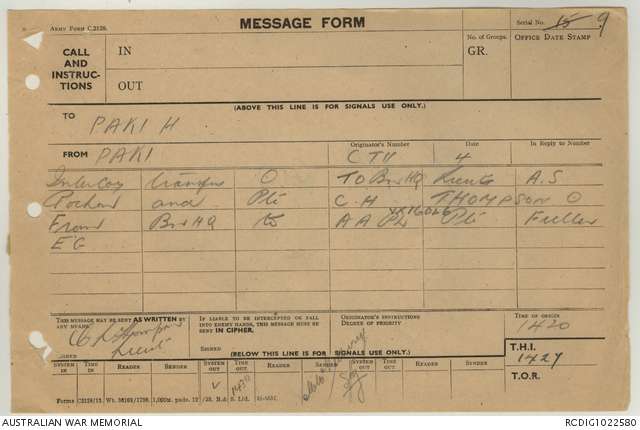 ARMY FORM C.2128.
MESSAGE FORM
Serial No. 15 9
CALL AND INSTRUC-TIONS
IN
OUT
No. of Groups.
GR.
OFFICE DATE STAMP
(ABOVE THIS LINE IS FOR SIGNALS USE ONLY.)
TO PAKI H
FROM PAKI
Originator's Number CTH
Date 4
In Reply to
InterCoy transfer O TO Bn HQ Lieut A.S
and Pte C.H THOMPSON O
From Bn HQ to AA Pl Pte Fuller
EG
THIS MESSAGE MAY BE SENT AS WRITTEN BY ANY MEANS.
Thompson
Lieut
SIGNED
IF LIABLE TO BE INTERCEPTED OR FALL INTO ENEMY HANDS, THIS MESSAGE MUST BE SENT IN CIPHER.
SIGNED
ORIGINATOR'S INSTRUCTIONS
DEGREE OF PRIORITY
TIME OF ORIGIN
1420
(BELOW THIS LINE IS FOR SIGNALS USE ONLY.)
T.H.I.
1427
T.O.R.
SYSTEM IN
TIME IN
READER
SENDER
SYSTEM OUT
TIME OUT
READER
SENDER
SYSTEM OUT
TIME OUT
READER
SENDER
V 1430
AUSTRALIAN WAR MEMORIAL
RCDIG1022580